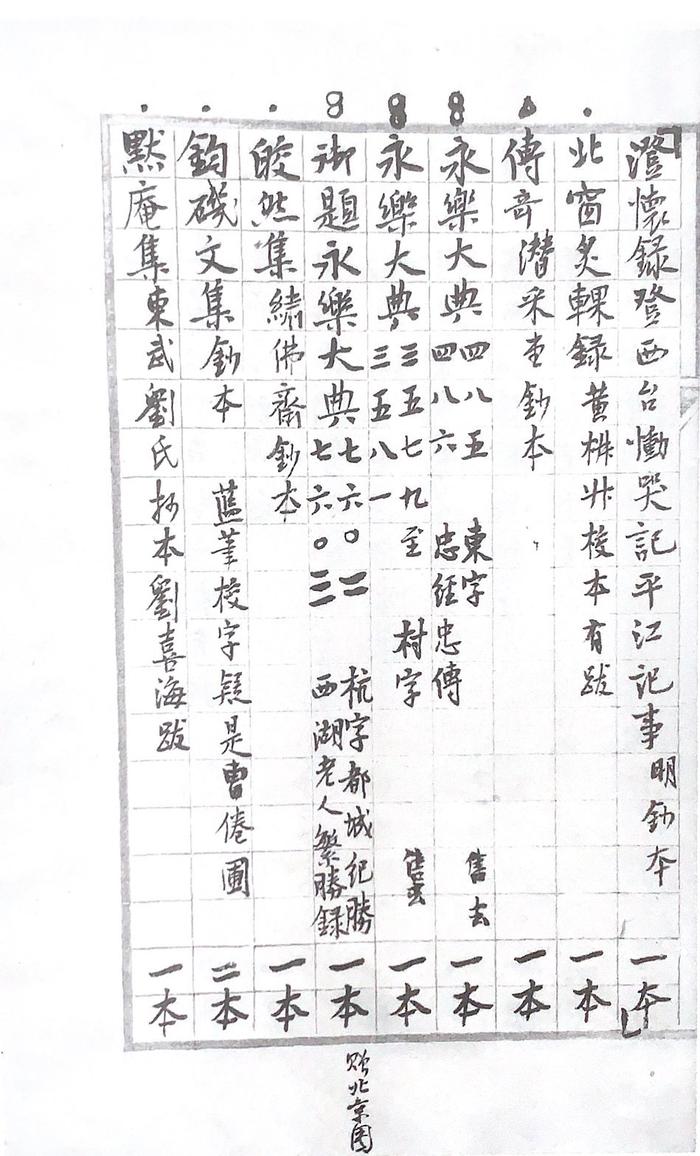 澄懷録登西台慟哭記平江記事明鈔本 一本
北窗炙輠録 黄棥圤校本有跋 一本
傅音潜采堂鈔本 一本
永樂大典四八五 四八六 東字 忠經忠傳 售去 一本
永樂大典三五七九至 三五八一 村字 售去 一本
御題永樂大典七六〇二 七六〇三 杭字都城紀勝 西湖老人繁勝録 一本
皎然集繡佛齋鈔本 一本
釣磯文集鈔本 藍筆校字疑是曹倦圃 二本
默庵集東武劉氏抄本劉喜海跋 一本
北京图